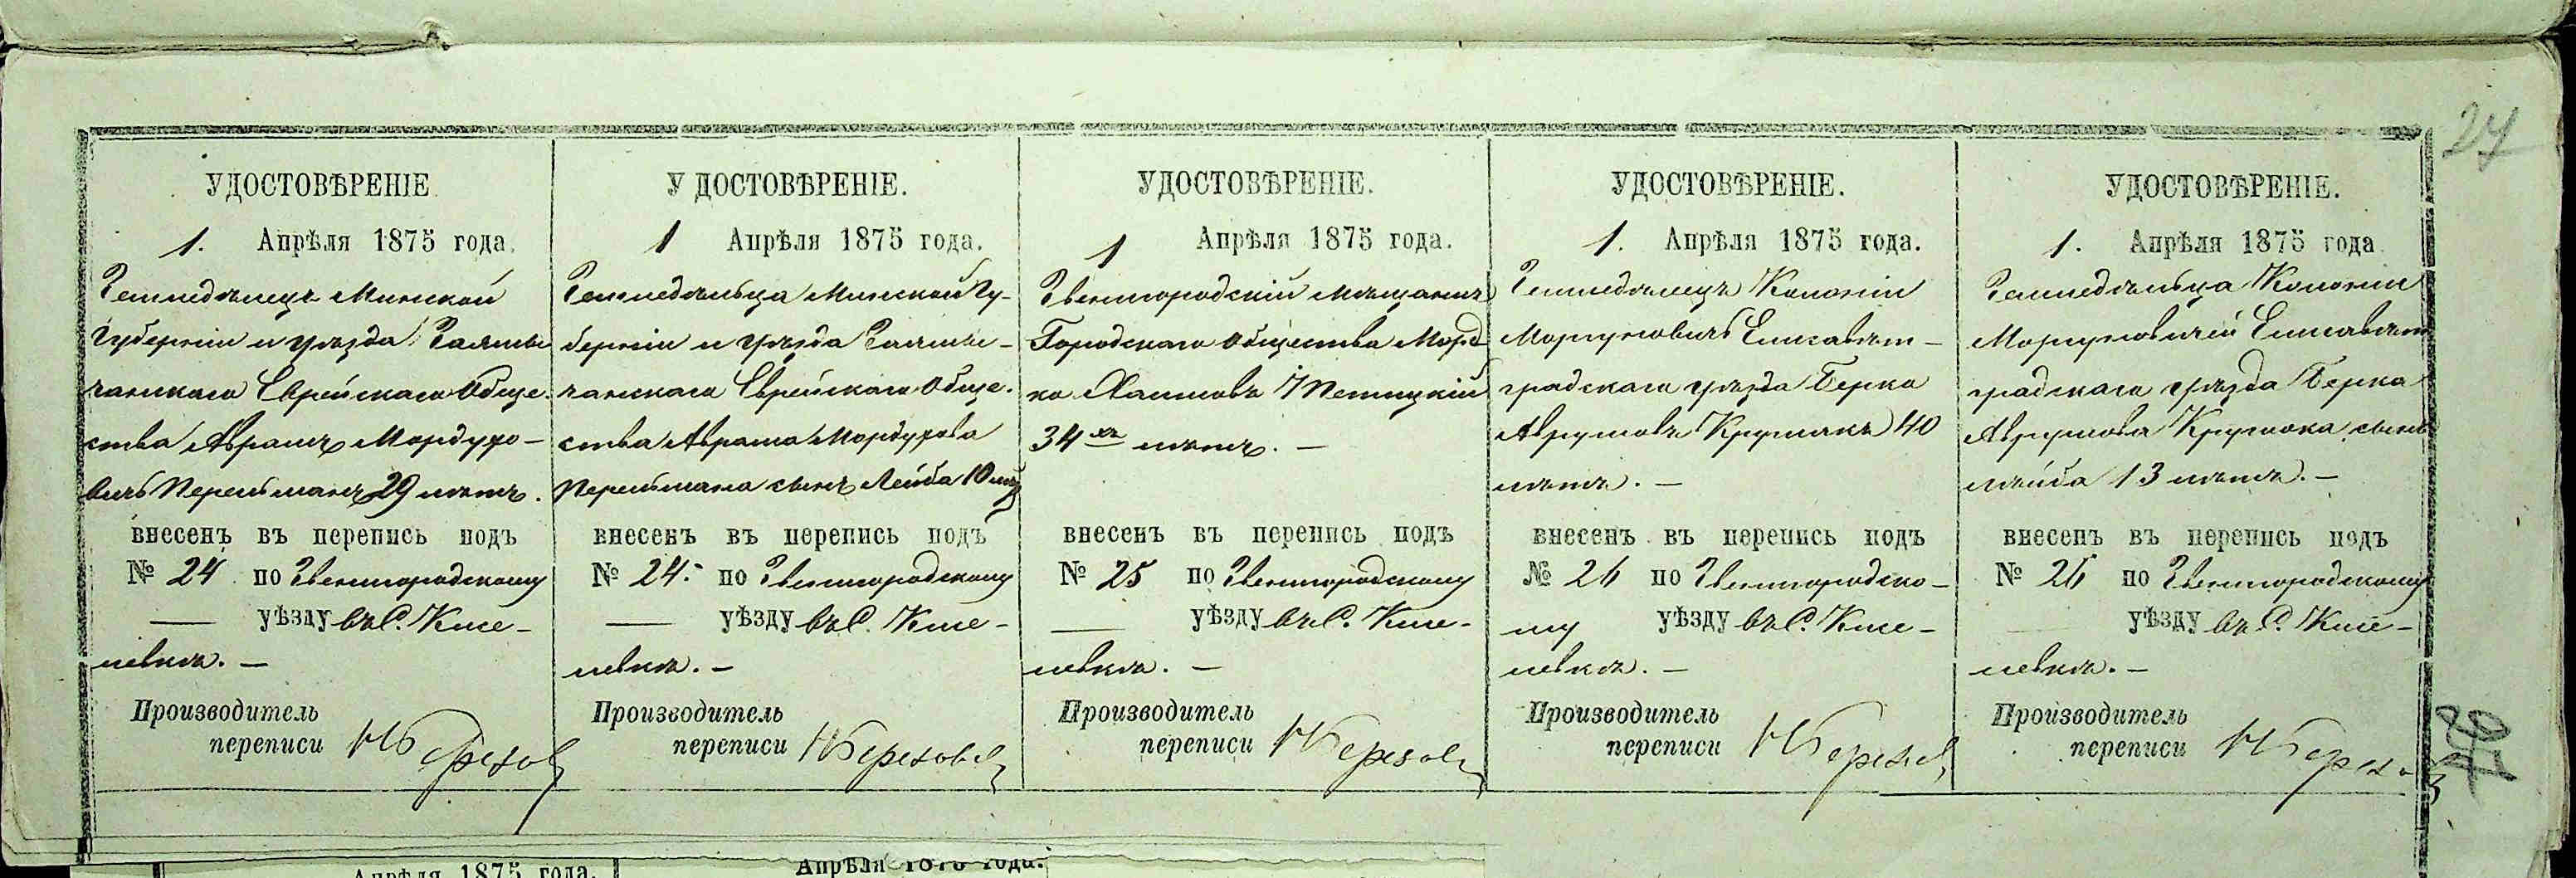 27
УДОСТОВѢРЕНІЕ
1. Апрѣля 1875 года.
Земледѣлецъ Минской
Губерніи и уѣзда
чанскаго Еврейскаго Обще-
ства Аврамъ Мордухо-
вичъ Перельманъ 29 лѣтъ.
внесенъ въ перепись подъ
№ 24 по Звенигородскому
— уѣзду въ С. Кисе-
левкѣ. —
Производитель
переписи
УДОСТОВѢРЕНІЕ.
1 Апрѣля 1875 года.
Земледѣльца Минской Гу-
берніи и уѣзда
чанскаго Еврейскаго Обще-
ства Аврама Мордухова
Перельмана сынъ Лейба 10 лѣтъ
внесенъ въ перепись подъ
№ 24. по Звенигородскому
— уѣзду въ С. Кисе-
левкѣ. —
Производитель
переписи
УДОСТОВѢРЕНІЕ.
1 Апрѣля 1875 года.
Звенигородскій мѣщанинъ
Городскаго Общества Морд-
ко Хаимовъ
34хъ лѣтъ. —
внесенъ въ перепись подъ
№ 25 по Звенигородскому
— уѣзду въ С. Кисе-
левкѣ. —
Производитель
переписи
УДОСТОВѢРЕНІЕ.
1. Апрѣля 1875 года.
Земледѣлецъ Колоніи
Елисавет-
градскаго уѣзда Берко
Аврумовъ 40
лѣтъ. —
внесенъ въ перепись подъ
№ 26 по Звенигородско-
му уѣзду въ С. Кисе-
левкѣ. —
Производитель
переписи
УДОСТОВѢРЕНІЕ.
1. Апрѣля 1875 года
Земледѣльца Колоніи
Елисавет-
градскаго уѣзда Берка
Аврумова сынъ
Лейба 13 лѣтъ. —
внесенъ въ перепись подъ
№ 26 по Звенигородскому
уѣзду въ С. Кисе-
левкѣ. —
Производитель
переписи
Апрѣля 1875 года.
Апрѣля 1875 года.